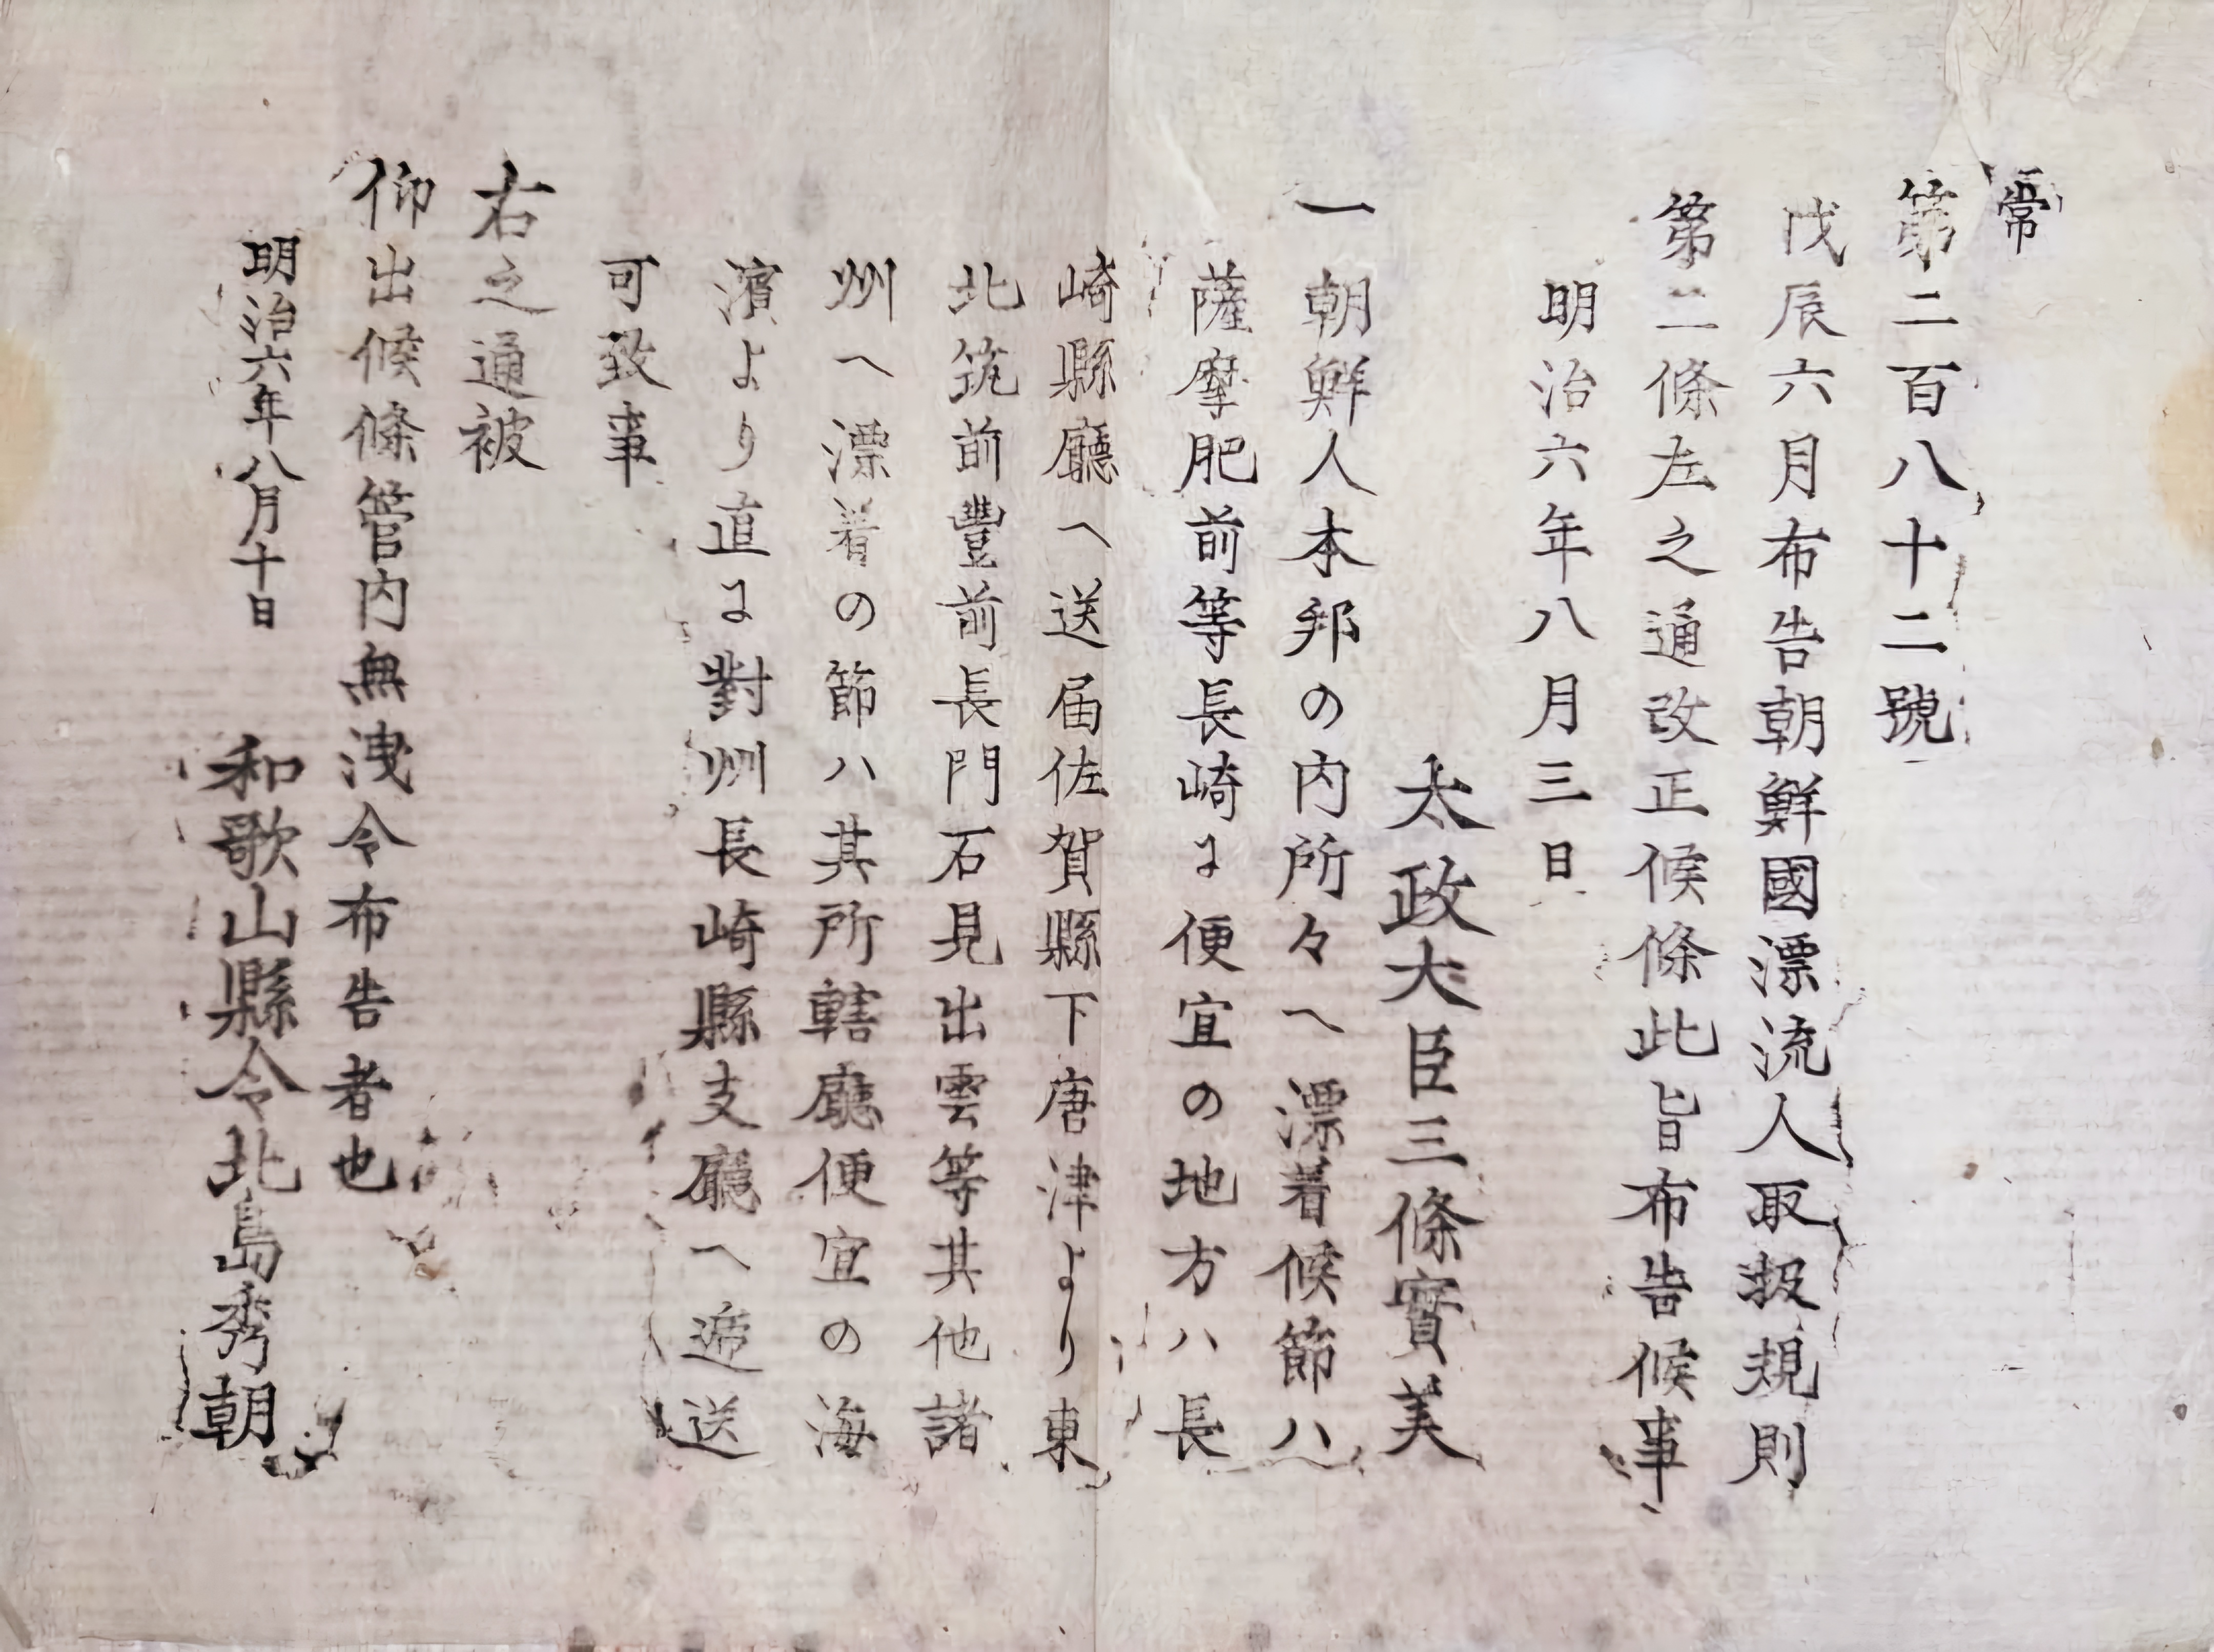 常
第二百八十二號
戊辰六月布告朝鮮國漂流人取扱規則
第二條左之通改正候條此旨布告候事
明治六年八月三日
太政大臣三條實美
一朝鮮人本邦の内所々へ漂着候節ハ
薩摩肥前等長崎に便宜の地方ハ長
崎縣廳へ送届佐賀縣下唐津より東
北筑前豐前長門石見出雲等其他諸
州へ漂着の節ハ其所轄廳便宜の海
濱より直に對州長崎縣支廳へ遞送
可致事
右之通被
仰出候條管内無洩令布告者也
明治六年八月十日
和歌山縣令北島秀朝